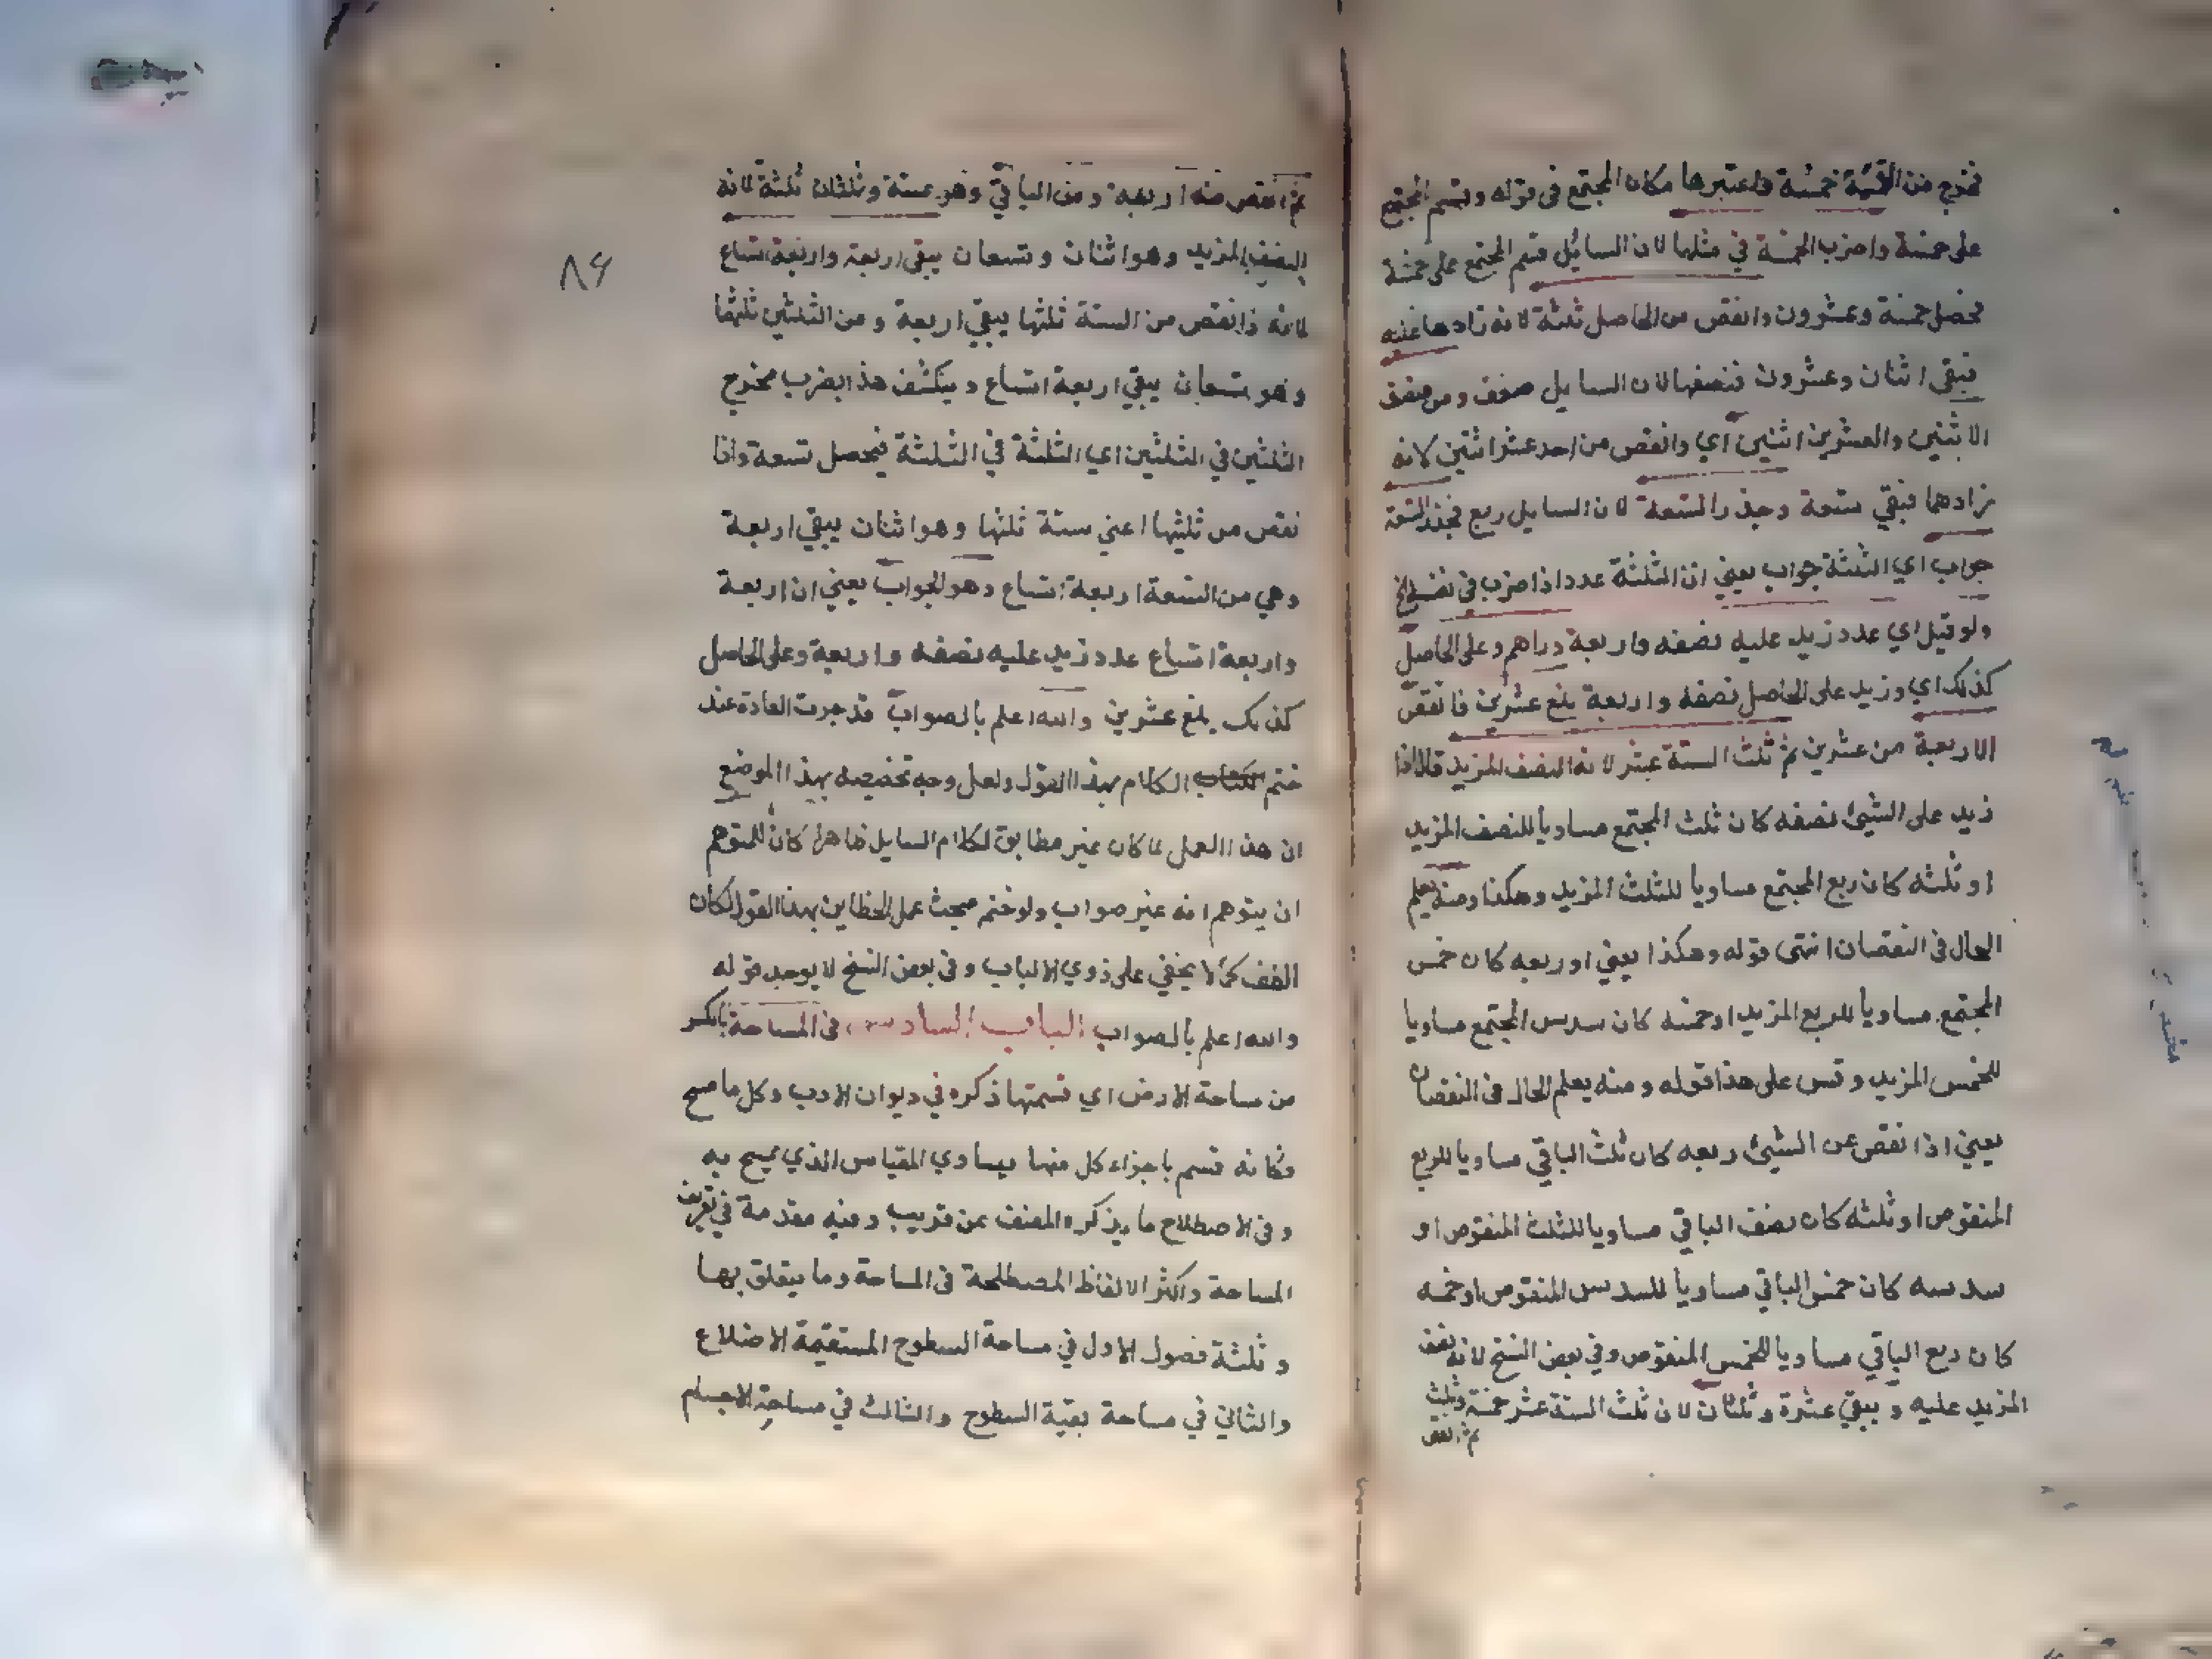 فخرج من القسمة خمسة واعتبرها مكان المجتمع في قوله وقسم المجتمع
على خمسة واضرب الخمسة في مثلها لان السائل قسم المجتمع على خمسة
يحصل خمسة وعشرون وانقص من الحاصل ثلثة لانه زادها عليه
فبقى اثنان وعشرون فنصفها لان السايل ضعف ومن نصف
الاثنين والعشرين اثنين اي وانقص من احد عشر اثنين لانه
زادهما فبقي تسعة وجذر التسعة لان السايل ربع فجذر التسعة
جواب اي الثلثة جواب يعني ان الثلثة عدد اذا ضرب في نفسه الخ
ولو قيل اي عدد زيد عليه نصفه واربعة دراهم وعلى الحاصل
كذلك اي وزيد على الحاصل نصفه واربعة بلغ عشرين فانقص
الاربعة من عشرين ثم ثلث الستة عشر لانه النصف المزيد فلذا اذا
زيد على الشيئ نصفه كان ثلث المجتمع مساويا للنصف المزيد
او ثلثه كان ربع المجتمع مساويا للثلث المزيد وهكذا ومنه يعلم
الحال في النقصان انتهى قوله وهكذا يعني او ربعه كان خمس
المجتمع مساويا للربع المزيد او خمسه كان سدس المجتمع مساويا
للخمس المزيد وقس على هذا قوله ومنه يعلم الحال في النقصان
يعني اذا نقص من الشيئ ربعه كان ثلث الباقي مساويا للربع
المنقوص او ثلثه كان نصف الباقي مساويا للثلث المنقوص او
سدسه كان خمس الباقي مساويا للسدس المنقوص او خمسه
كان ربع الباقي مساويا للخمس المنقوص وفي بعض النسخ لانه نصف
المزيد عليه و يبقى عشرة وثلثان لان ثلث الستة عشر خمسة وثلث
ثم انقص
ثم انقص منه اربعة ومن الباقي وهو ستة وثلثان ثلثه لانه
النصف المزيد وهو اثنان وتسعان يبقى اربعة واربعة اتساع
لانه اذا نقص من الستة ثلثها يبقي اربعة ومن الثلثين ثلثها
وهو تسعان يبقي اربعة اتساع وينكشف هذا بضرب مخرج
الثلثين في الثلثين اي الثلثة في الثلثة فيحصل تسعة واذا
نقص من ثلثيها اعني ستة ثلثها وهو اثنان يبقي اربعة
وهي من التسعة اربعة اتساع وهو الجواب يعني ان اربعة
واربعة اتساع عدد زيد عليه نصفه واربعة وعلى الحاصل
كذلك بلغ عشرين والله اعلم بالصواب قد جرت العادة عند
ختم الكتاب الكلام بهذا القول ولعل وجه تخصيصه بهذا الموضع
ان هذا العمل لما كان غير مطابق لكلام السايل ظاهرا كان للمتوهم
ان يتوهم انه غير صواب ولو ختم مبحث عمل الخطاين بهذا القول لكان
الطف كما لا يخفي على ذوي الالباب وفي بعض النسخ لا يوجد قوله
والله اعلم بالصواب الباب السادس في المساحة بالكسر
من مساحة الارض اي قسمتها ذكره في ديوان الادب وكل ما مسح
فكانه قسم باجزاء كل منها يساوي المقياس الذي يمسح به
وفي الاصطلاح ما يذكره المصنف عن قريب وفيه مقدمة في تعريف
المساحة واكثر الالفاظ المصطلحة في المساحة وما يتعلق بها
و ثلثة فصول الاول في مساحة السطوح المستقيمة الاضلاع
والثاني في مساحة بقية السطوح والثالث في مساحة الاجسام